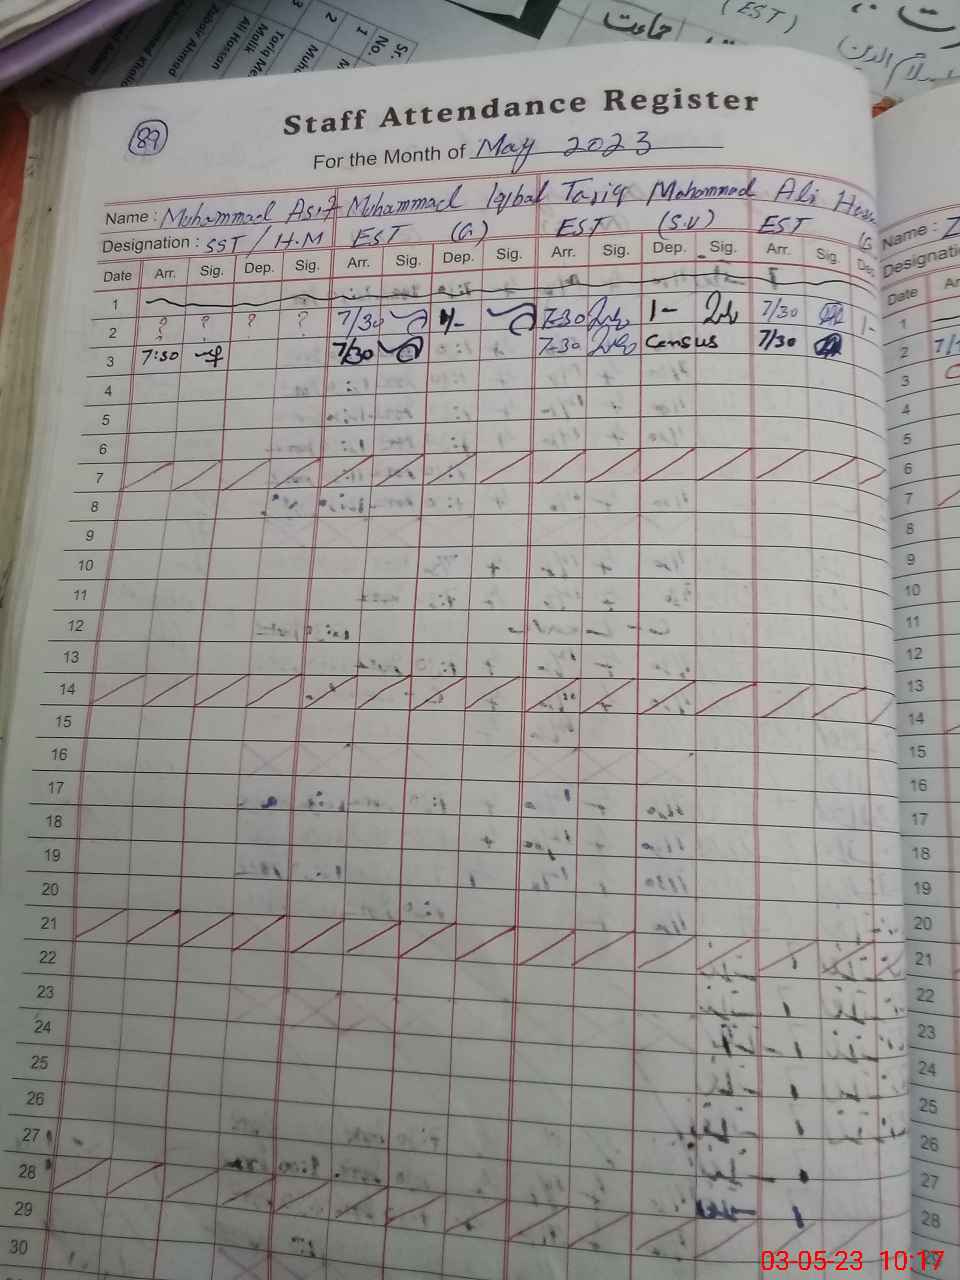 (EST)
جماعت
اسلام الدین
Sr. No.
1
2
3
Muh
Tariq Me
Malik
Ali Hassan
Zubair Ahmad
Staff Attendance Register
89
For the Month of May 2023
Name : Mohammad Asif Mohammad Iqbal Tariq Mohammad Ali Hassn
Designation : SST / H.M EST (G) EST (S.V) EST (G
Date Arr. Sig. Dep. Sig. Arr. Sig. Dep. Sig. Arr. Sig. Dep. Sig. Arr. Sig. Dep
1
2 ? ? ? ? 7/30 1/- 7-30 1- 7/30 1-
3 7:30 7/30 7-30 Census 7/30
4
5
6
7
8
9
10
11
12
13
14
15
16
17
18
19
20
21
22
23
24
25
26
27
28
29
30
Name : Z
Designatio
Date Ar
1
2 7/
3
4
5
6
7
8
9
10
11
12
13
14
15
16
17
18
19
20
21
22
23
24
25
26
27
28
03-05-23 10:17